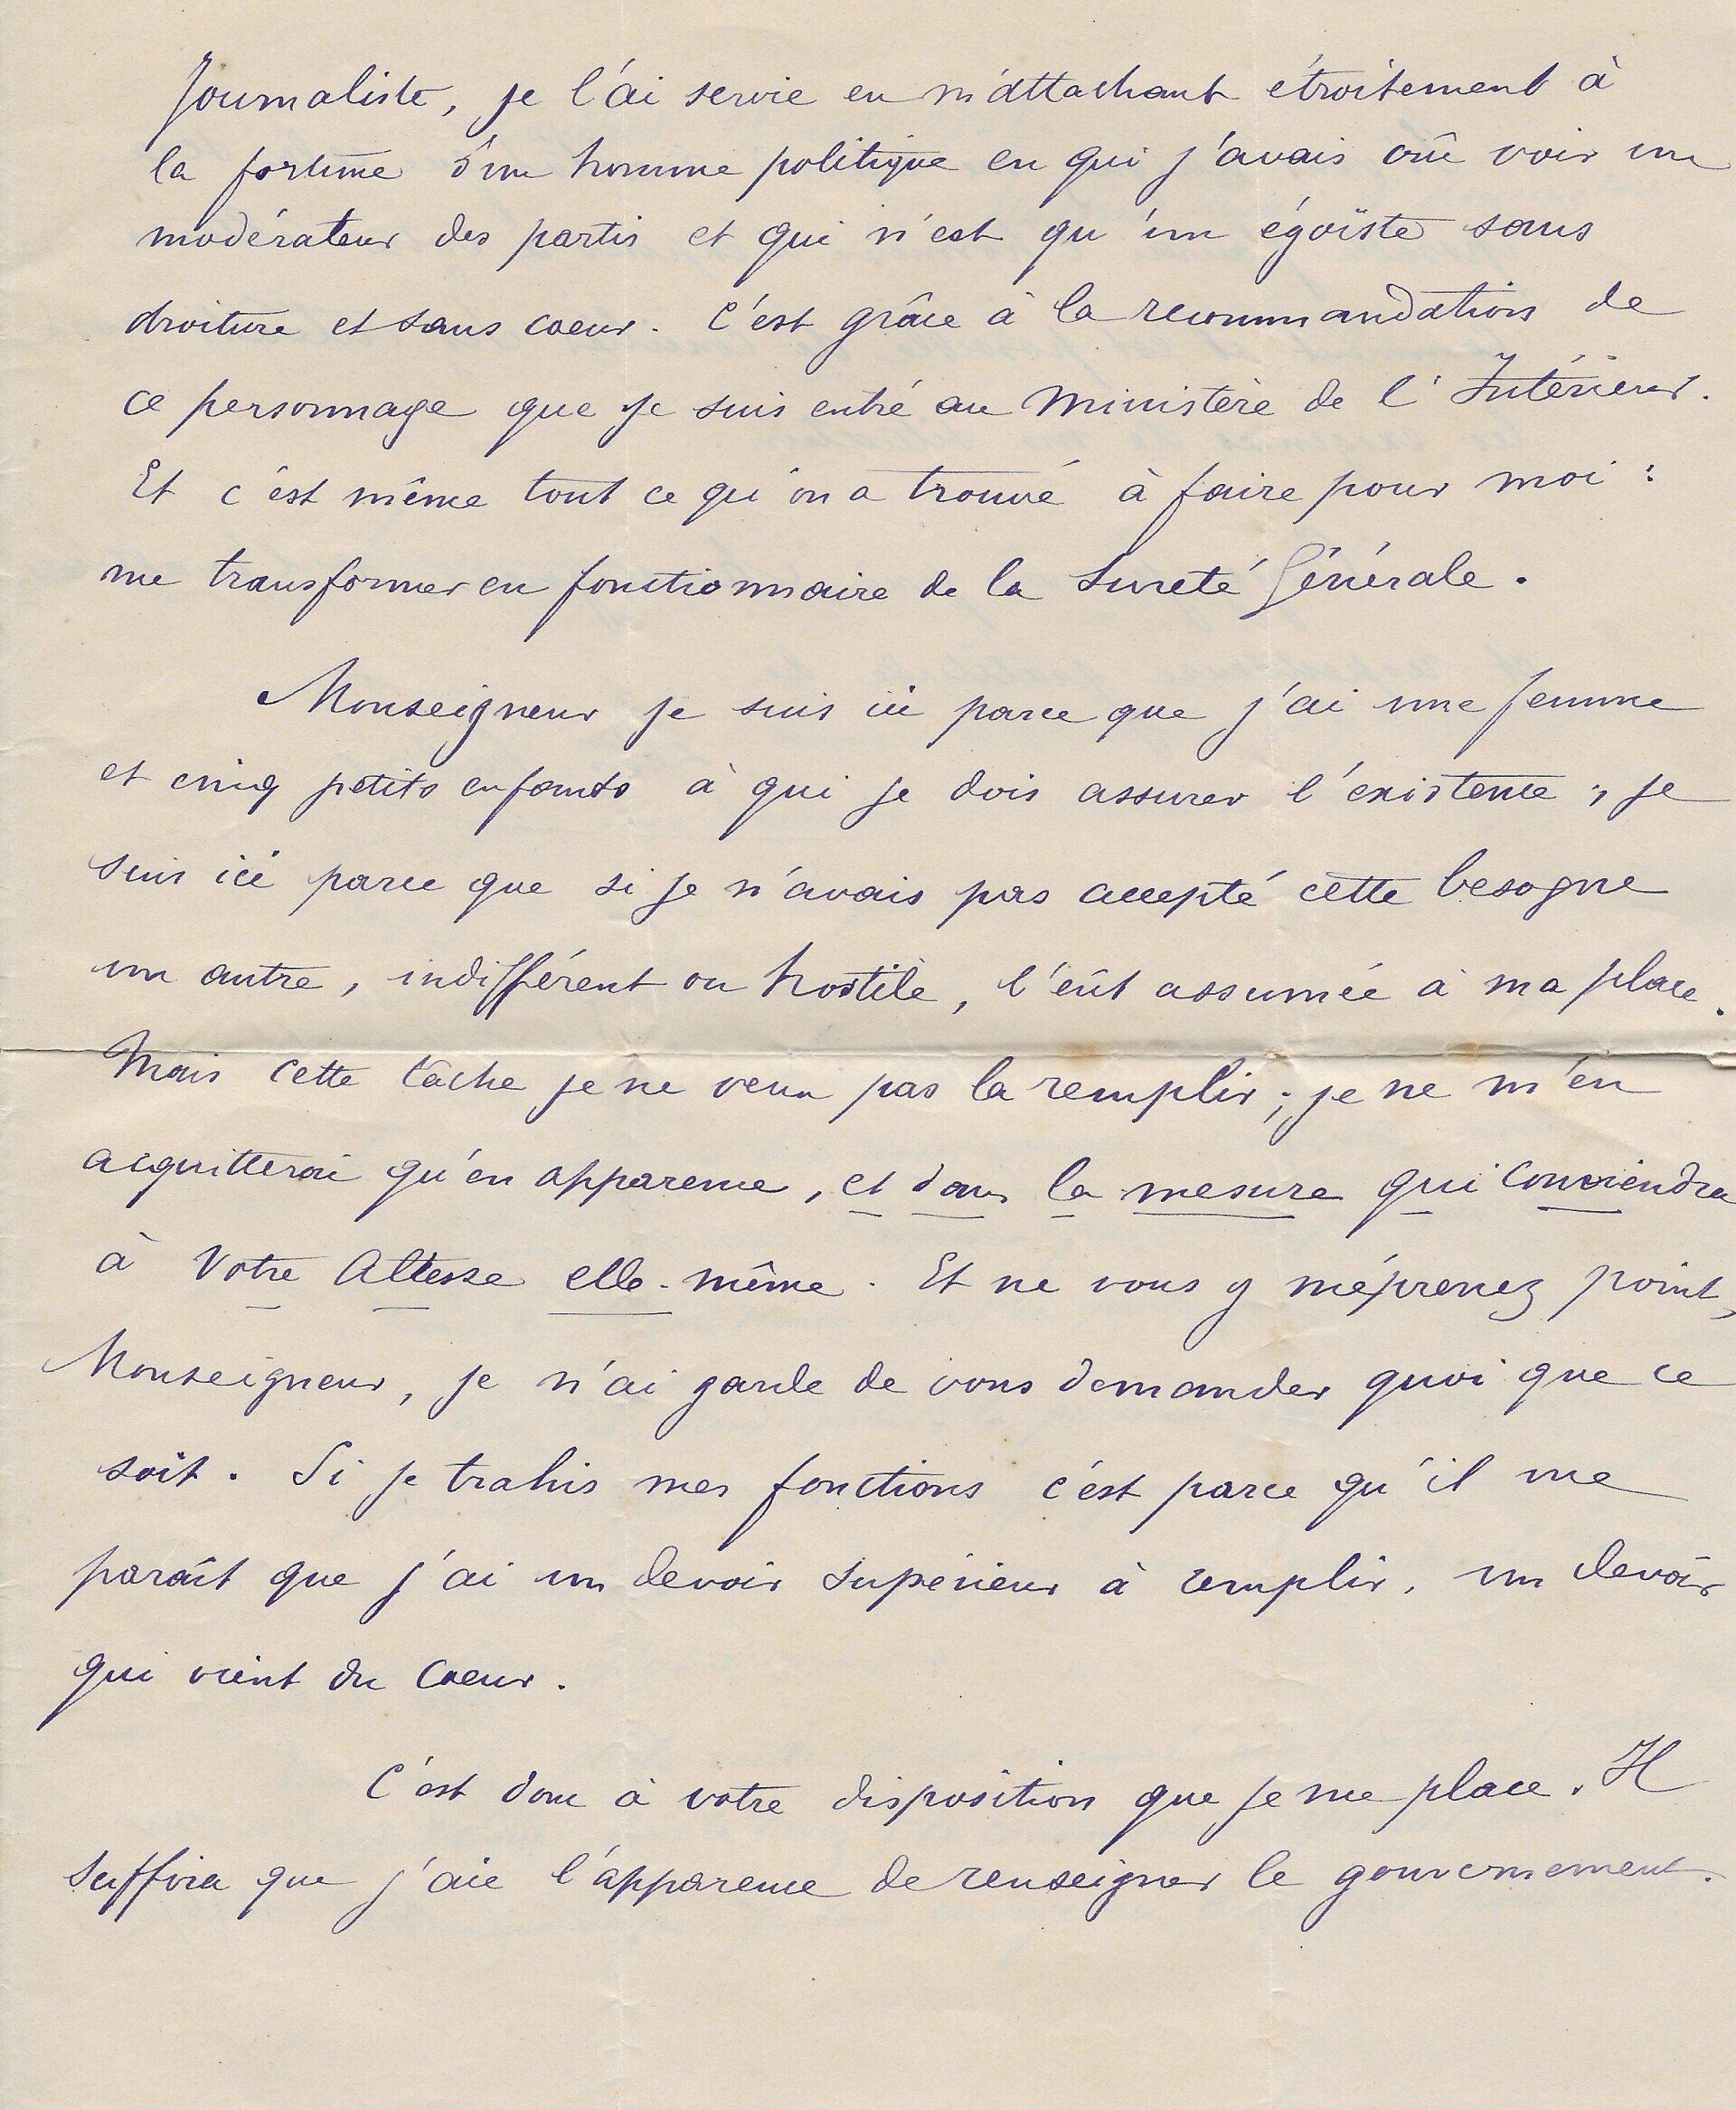 Journaliste, je l'ai servie en m'attachant étroitement à
la fortune d'un homme politique en qui j'avais crû voir un
modérateur des partis et qui n'est qu'un égoïste sans
droiture et sans coeur. C'est grâce à la recommandation de
ce personnage que je suis entré au Ministère de l'Intérieur.
Et c'est même tout ce qu'on a trouvé à faire pour moi :
me transformer en fonctionnaire de la Sureté Générale.
Monseigneur je suis ici parce que j'ai une femme
et cinq petits enfants à qui je dois assurer l'existence ; je
suis ici parce que si je n'avais pas accepté cette besogne
un autre, indifférent ou hostile, l'eût assumée à ma place.
Mais cette tâche je ne veux pas la remplir ; je ne m'en
acquitterai qu'en apparence, et dans la mesure qui conviendra
à Votre Altesse elle-même. Et ne vous y méprenez point,
Monseigneur, je n'ai garde de vous demander quoi que ce
soit. Si je trahis mes fonctions c'est parce qu'il me
paraît que j'ai un devoir supérieur à remplir, un devoir
qui vient du coeur.
C'est donc à votre disposition que je me place. Il
suffira que j'aie l'apparence de renseigner le gouvernement.